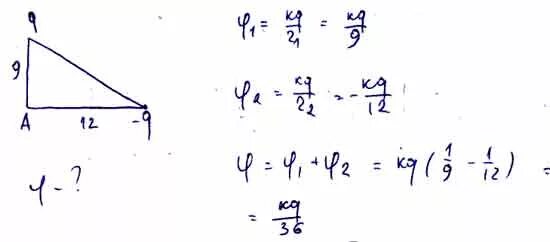 q
9
A 12 -q
φ - ?
φ₁ = kq/r₁ = kq/9
φ₂ = kq/r₂ = -kq/12
φ = φ₁ + φ₂ = kq(1/9 - 1/12) =
= kq/36